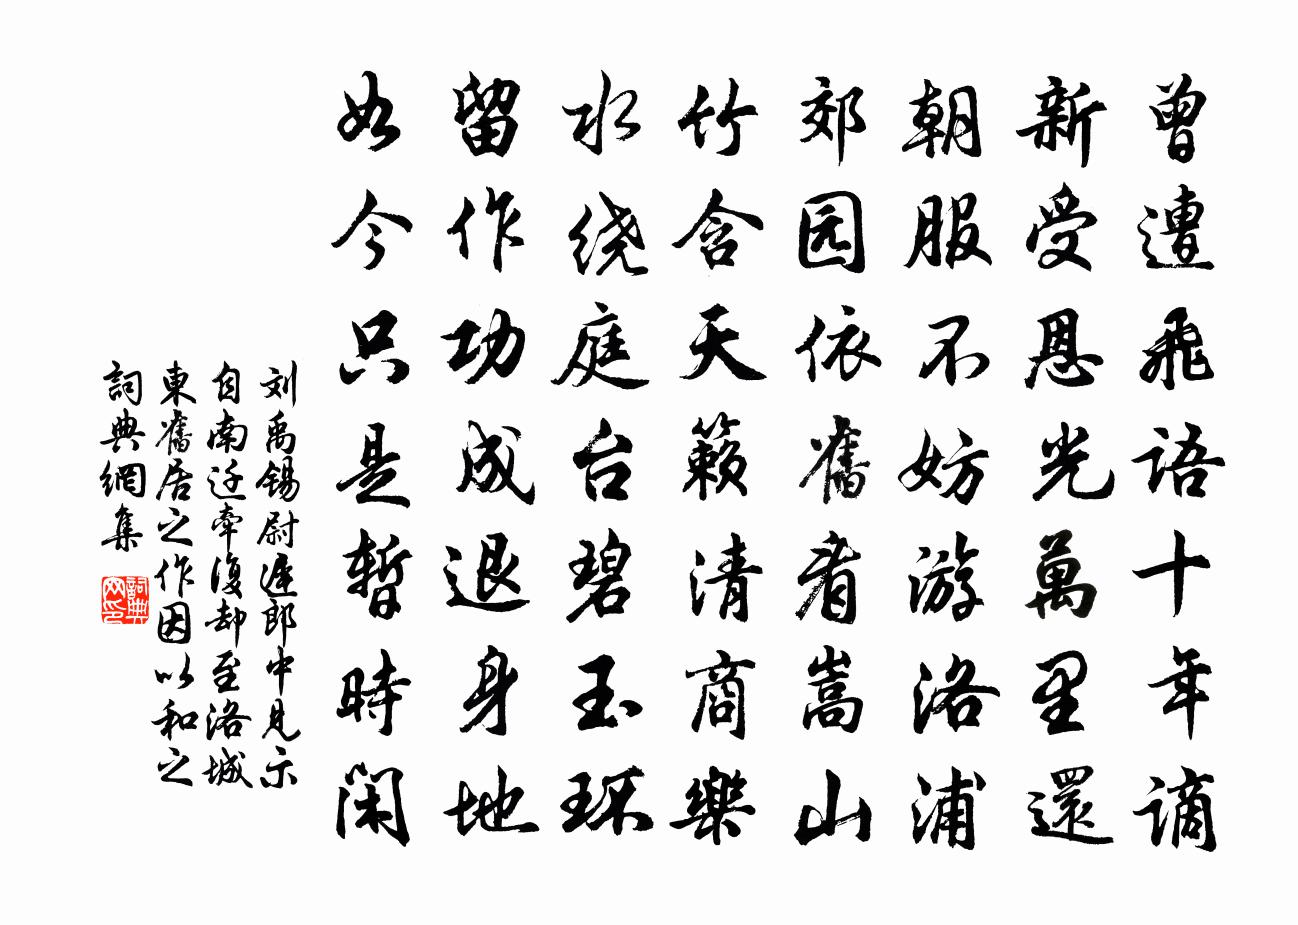 曾遭飛语十年谪
新受恩光萬里還
朝服不妨游洛浦
郊园依舊看嵩山
竹含天籟清商樂
水绕庭台碧玉环
留作功成退身地
如今只是暫時闲
刘禹锡尉遲郎中见示
自南迁牵復却至洛城
東舊居之作因以和之
詞典網集